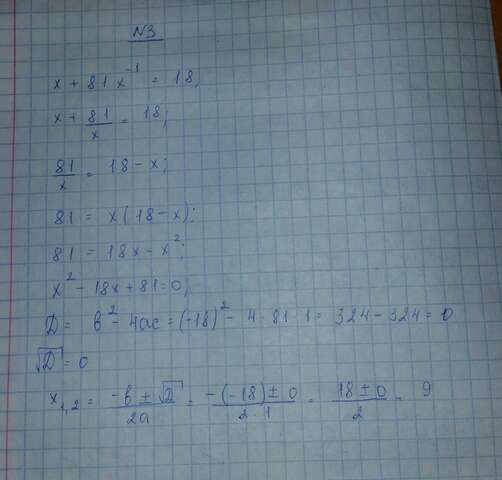 N3
x + 81 x⁻¹ = 18;
x + 81/x = 18;
81/x = 18 - x;
81 = x(18 - x);
81 = 18x - x²;
x² - 18x + 81 = 0;
D = b² - 4ac = (-18)² - 4 · 81 · 1 = 324 - 324 = 0
√D = 0
x₁,₂ = (-b ± √D)/2a = (-(-18) ± 0)/(2 · 1) = (18 ± 0)/2 = 9